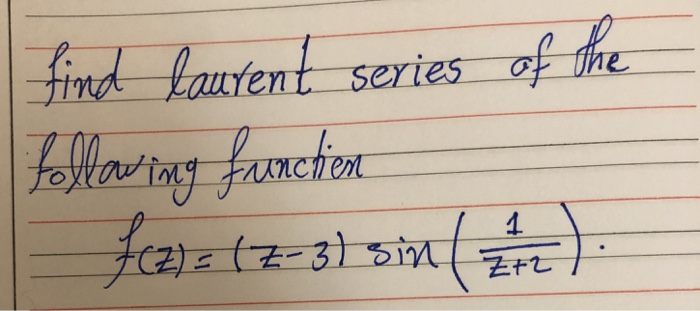 find laurent series of the
following function
f(z) = (z-3) sin ( 1/z+2 ).